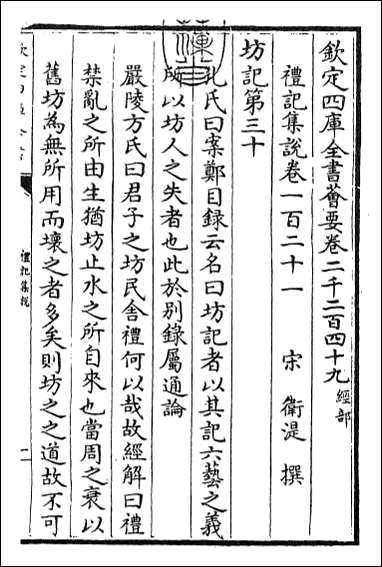 欽定四庫全書薈要卷二千二百四十九 經部
禮記集說卷一百二十一 宋 衛湜 撰
坊記第三十
孔氏曰案鄭目録云名曰坊記者以其記六藝之義
所以坊人之失者也此於別錄屬通論
嚴陵方氏曰君子之坊民舍禮何以哉故經解曰禮
禁亂之所由生猶坊止水之所自來也當周之衰以
舊坊為無所用而壞之者多矣則坊之之道故不可
禮記集說